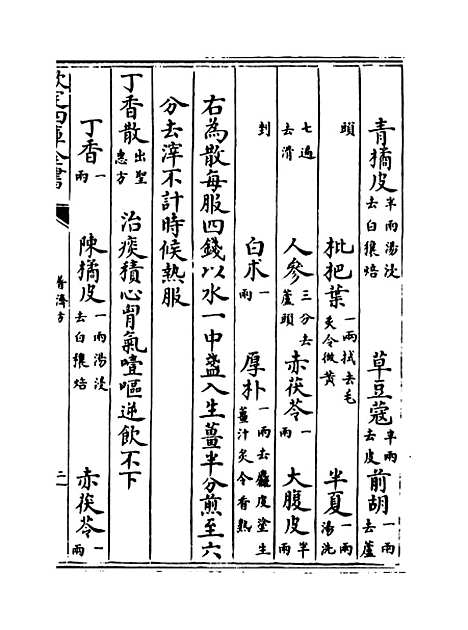 青橘皮半兩湯浸去白穰焙 草豆蔻半兩去皮 前胡一兩去蘆
頭 枇把葉一兩拭去毛炙令微黄 半夏一兩湯洗
七遍去滑 人參三分去蘆頭 赤茯苓一兩 大腹皮半兩
剉 白术一兩 厚朴一兩去麤皮塗生薑汁炙令香熟
右為散每服四錢以水一中盞入生薑半分煎至六
分去滓不計時候熱服
丁香散出聖惠方 治痰積心胷氣噎嘔逆飲不下
丁香一兩 陳橘皮一兩湯浸去白穰焙 赤茯苓一兩
欽定四庫全書
普濟方